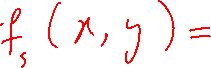 f_s (x, y) =